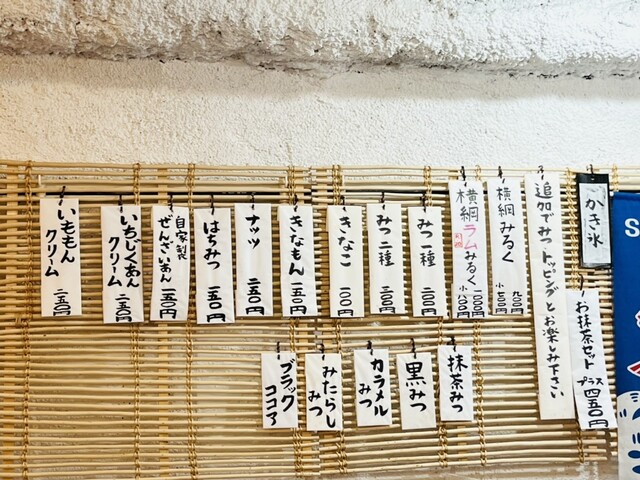 かき氷
お抹茶セット
プラス 四五〇円
追加でみつトッピングとお楽しみ下さい
横綱みるく
九〇〇円
横綱ラムみるく
一〇〇〇円
みつ一種
二〇〇円
みつ二種
三〇〇円
きなこ
一〇〇円
きなもん
三五〇円
ナッツ
二五〇円
はちみつ
一五〇円
自家製
ぜんざいあん
一五〇円
いちじくあん
クリーム
三五〇円
いももん
クリーム
三五〇円
抹茶みつ
黒みつ
カラメル
みつ
みたらし
みつ
ブラック
ココア
S